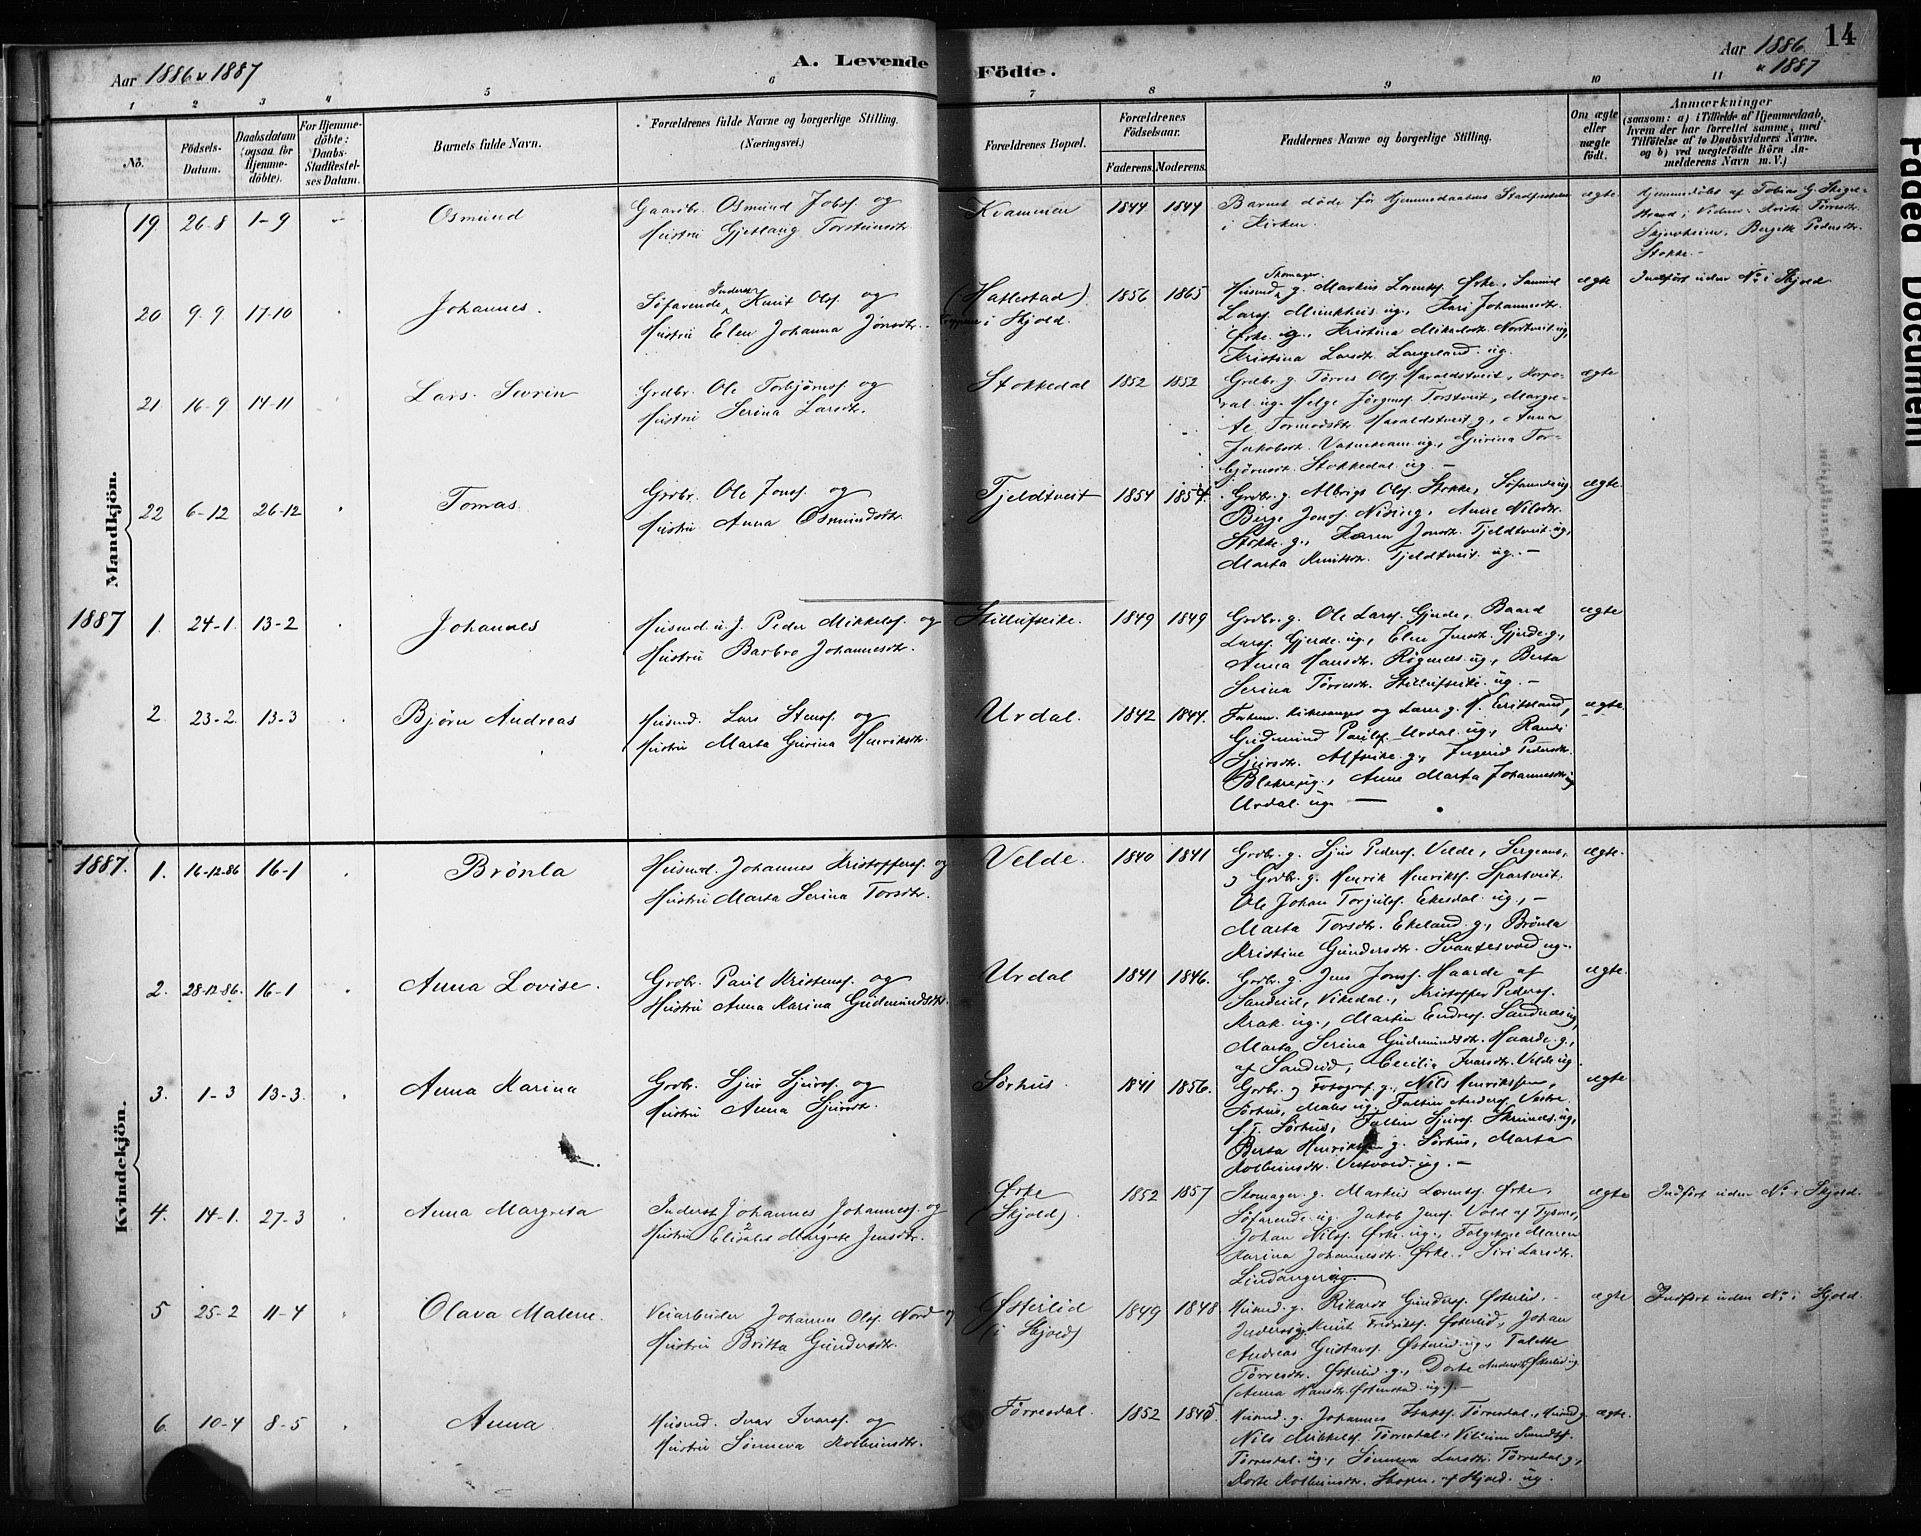 Aar 1886 & 1887
A. Levende Födte.
Aar 1886 & 1887
14
1 2 3 4 5 6 7 8 9 10 11
No.
Födsels-Datum.
Daabsdatum (ogsaa for Hjemme-döbte).
For Hjemme-döbte: Daabs-Stadfæstel-ses Datum.
Barnets fulde Navn.
Forældrenes fulde Navne og borgerlige Stilling. (Næringsvei.)
Forældrenes Bopæl.
Forældrenes Födselsaar.
Faderens. Moderens.
Faddernes Navne og borgerlige Stilling.
Om ægte eller uægte födt.
Anmærkninger
(saasom: a) i Tilfælde af Hjemmedaab, hvem der har forrettet samme, med Tilföielse af to Daabsvidners Navne, og b) ved uægtefödte Börn An-melderens Navn m. V.)
Mandkjön.
19 26-8 1-9 Osmund
Gaardbr. Osmund Jobs. og
Hustru Gjetlaug Torsteinsdtr.
Kvammen 1844 1844
Barnet døde før Hjemmedaabens Stadfæstelse
i Kirken.
ægte
Hjemmedøbt af Tobias G. Skeges-
strand; Vidner: Kristi Tørresdtr.
Skjerveheim, Bergitte Pedersdtr.
Stokke.-
20 9-9 17-10 Johannes.
Søfarende, Inderst Knut Ols. og
Hustru Elen Johanna Jønsdtr.
(Hatlestad)
i Skjold.
1856 1865
Husmd, Skomager g. Markus Lorents. Ørke, Samuel
Lars. Munkhus ug., Kari Johannesdtr.
Ørke ug., Kristina Mikalsdtr. Nordtveit ug,
Kristina Larsdtr. Langeland. ug.
ægte
Indført uden No. i Skjold
21 16-9 14-11 Lars Severin
Grdbr. Ole Torbjørns. og
Hustru Serina Larsdtr.
Stokkedal 1852 1852
Grdbr. g. Tørres Ols. Haraldstveit, Korpo-
ral ug. Helge Jörgens. Torstveit, Margre-
te Tormodsdtr. Haraldstveit g., Anna
Jakobsdtr. Vatnekvam ug., Gurina Tor-
bjørnsdtr. Stokkedal ug. -
ægte
22 6-12 26-12 Tomas.
Grdbr. Ole Jons. og
Hustru Anna Osmundsdtr.
Tjeldtveit 1854 1854.
Grdbr. g. Albrigt Ols. Stokke, Søfarende ug
Berge Jons. Nising, Anne Nilsdtr.
Stokke g., Karen Jonsdtr. Tjeldtveit ug,
Marta Knutsdtr. Tjeldtveit ug. -
ægte
1887 1. 24-1. 13-2 Johannes
Husmd. u. J. Peder Mikkels. og
Hustru Barbro Johannesdtr.
1849 1849
Grdbr. g. Ole Lars. Gjerde, Baard
Lars. Gjerde. ug., Elen Jensdtr. Gjerde g.,
Anna Hansdtr. Røgenes ug., Berta
Serina Tørresdtr. ug. -
ægte
2. 23-2. 13-3 Bjørn Andreas
Husmd. Lars Stens. og
Hustru Marta Gurina Henriksdtr.
Urdal. 1842 1844.
Kirkesanger og Lærer g. M. Eriksland,
Gudmund Pauls. Urdal. ug., Randi
Sjursdtr. Alfsvike g., Ingerid Pedersdtr.
ug., Anne Marta Johannesdtr ug
Urdal. ug. -
ægte.
Kvindekjön.
1887. 1. 16-12-86 16-1 Brönla
Husmd. Johannes Kristoffers. og
Hustru Marta Serina Torsdtr.
Velde. 1840 1841
Grdbr. g. Sjur Peders. Velde, Sergeant,
og Grdbr. g. Henrik Henriks. Spartveit
Ole Johan Torjuls. Ekesdal. ug., -
Marta Torsdtr. Ekeland. g., Brönla
Kristine Gundersdtr. Svantesvold ug-
ægte.
2. 28-12-86. 16-1 Anna Lovise.
Grdbr. Paul Kristens. og
Hustru Anna Karina Gudmundsdtr.
Urdal 1841 1846.
Grdbr. g. Jens Jons. Haarde af
Sandeid, Vikedal., Kristoffer Peders.
Krak. ug., Martin Endres. Sandnæs ug,
Marta Serina Gudmundsdtr. Haarde g.,
af Sandeid, Cecilia Ivarsdtr. Velde ug
ægte.
3. 1-3 13-3. Anna Karina
Grdbr. Sjur Sjurs. og
Hustru Anna Sjursdtr.
Sørhus. 1841 1856.
Grdbr. og Fotograf. g., Nils Henriksen,
Sørhus, Maler ug. Faltin Anders. Vestre
f. T. Sørhus, Faltin Sjurs. Skeinæs ug,
Berta g. Sørhus, Marta
Kolbeinsdtr. Vestvold. ug. -
ægte
4. 14-1. 27-3 Anna Margreta
Inderst Johannes Johanness. og
Hustru Elisabet Margrete Jensdtr.
Ørke
(Skjold)
1852 1857
Skomager. g. Markus Lorents. Ørke,
Søfarende. ug. Jakob Jens. Vold af Tysvær,
Johan Nils. Ørke. ug., Følgekone Maren
Karina Johannesdtr. Ørke. Siri Larsdtr.
Lindanger ug.
ægte
Indført uden No. i Skjold.
5 25-2 11-4 Olava Malene.
Veiarbeider Johannes Ols. Nord og
Hustru Britta Gundersdtr.
Østerlid
(i Skjold)
1849 1848
Husmd. g. Rikard Gunders. Østerlid. -
Inderst g. Knut Fredriks. Østerlid, Johan
Andreas Gustavs. Østerlid ug., Talette
Tørresdtr. Østerlid. g., Dorte Andersdtr. Østerlid ug
(Anna Hansdtr. ug.) -
ægte
Indført uden No. i Skjold.
6. 10-4 8-5 Anna
Husmd. Ivar Ivars. og
Hustru Sønneva Kolbeinsdtr.
Tørresdal. 1852 1845
Husmd. g. Johannes Tørresdal., Husmd g
Nils Mikkels. Tørresdal., Vilhelm
Tørresdal. ug., Sønneva Larsdtr. Tørresdal g.,
Dorte Kolbeinsdtr. af Skjold. ug.
ægte.
Faded Document